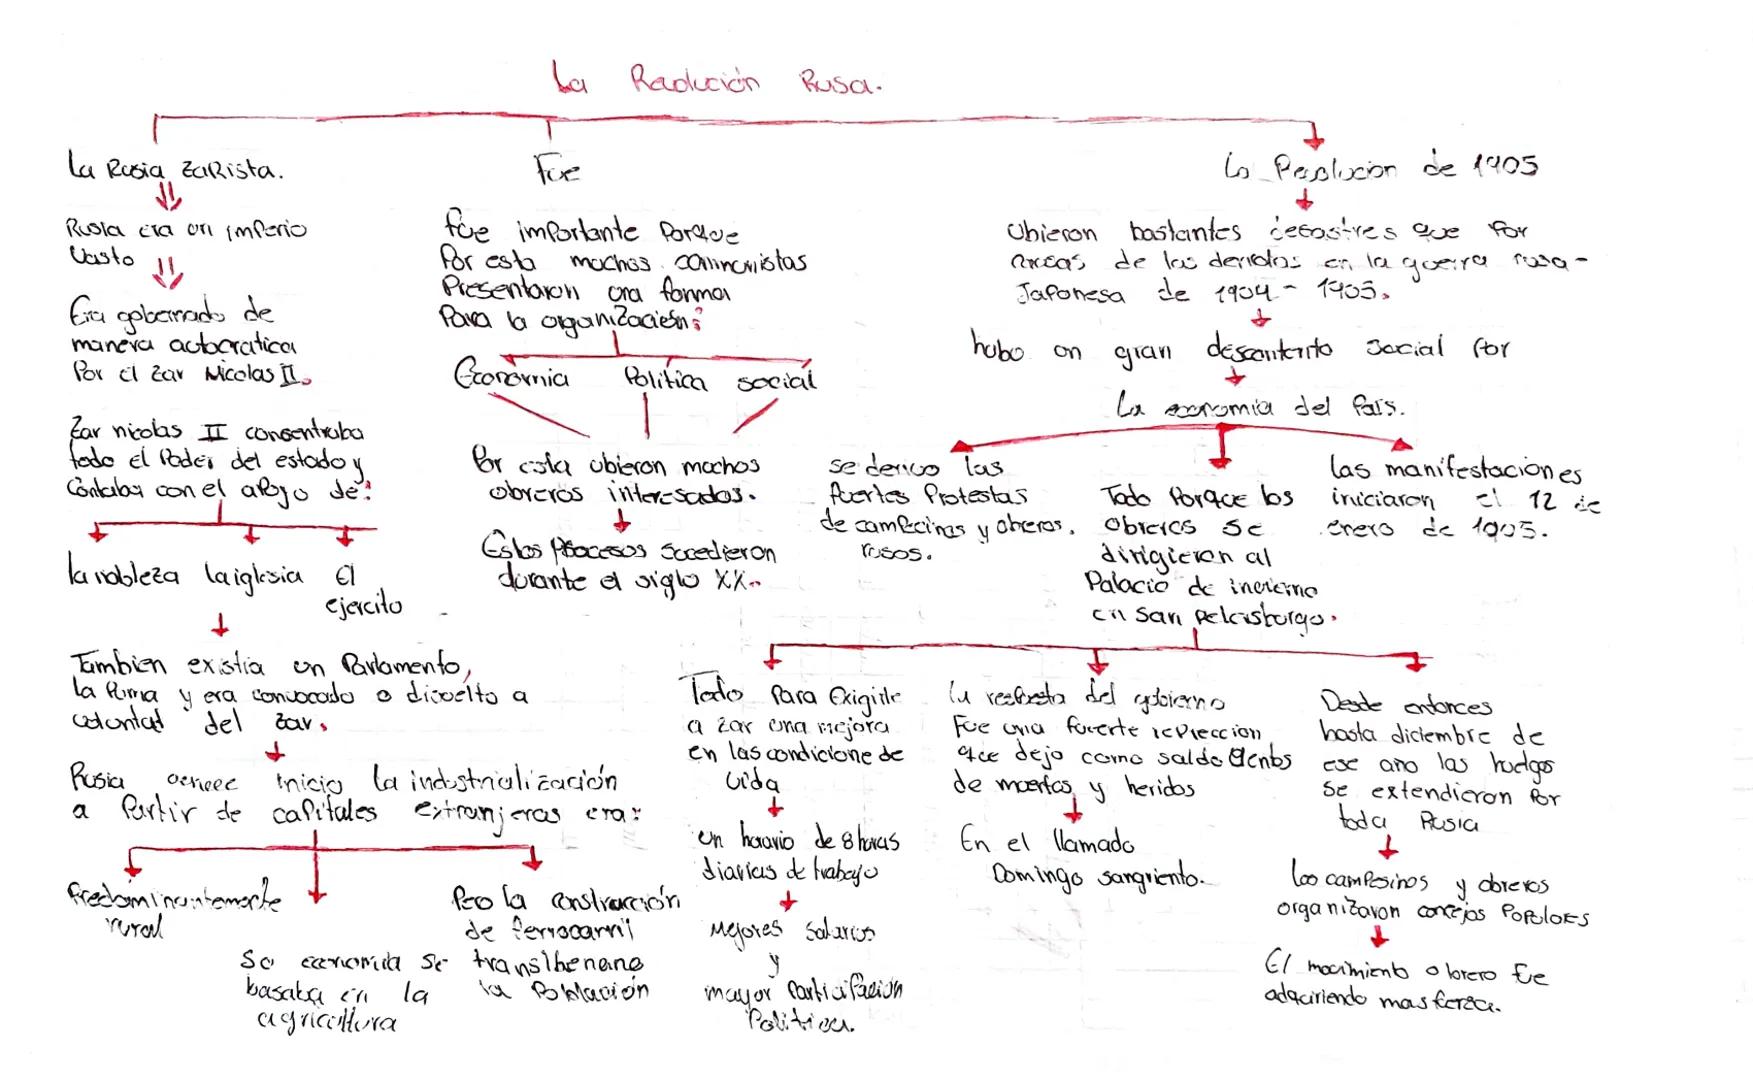 La Revolución Rusa.
La Rusia zaRista.
Rusia era un imperio
Vasto
Era gobernado de
manera autocratica
Por el zar Nicolas II.
Zar nicolas II consentraba
todo el Poder del estado y
Contaba con el apoyo de:
la nobleza la iglesia El
ejercito
Tambien existia un Parlamento,
la Puma y era convocado o disuelto a
voluntat del zar.
Rusia inicio la industrialización
a Partir de capitales extranjeras era:
Predominantemente
rural
So economida se
basaba en la
agricultura
Pero la construcción
de ferrocarril
la Población
Fue
fue importante Porque
Por esta muchos comunistas
Presentaron una forma
Para la organización:
Economia Politica social
Por esta ubieron muchos
obreros interesados.
Estos Procesos sucedieron
durante el siglo XX.
La Revolucion de 1905
Ubieron bastantes desastres que Por
de las derrotas en la guerra rusa-
Japonesa de 1904 - 1905.
hubo un gran descontento social Por
La economia del País.
se derivo las
fuertes Protestas
de campecinos y obreros.
rusos.
Todo Porque los
obreros se
dirigieron al
Palacio de invierno
en San petersburgo.
las manifestaciones
iniciaron el 12 de
enero de 1905.
Todo Para Exigirle
a zar una mejora
en las condicione de
vida
un horario de 8 horas
diarias de trabajo
Mejores Salarios
y
mayor Participación
Politica.
la respuesta del gobierno
Fue una fuerte represcion
que dejo como saldo cientos
de muertos y heridos
En el llamado
Domingo sangriento.
Desde entonces
hasta diciembre de
ese año las huelgas
se extendieron Por
toda Rusia
los campesinos y obreros
organizaron concejos Populares
El movimiento obrero fue
adquiriendo mas fuerza.